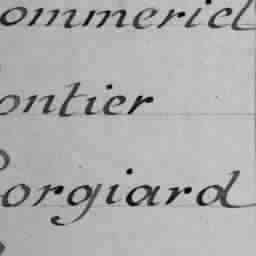 ommeriel
ontier
orgiard